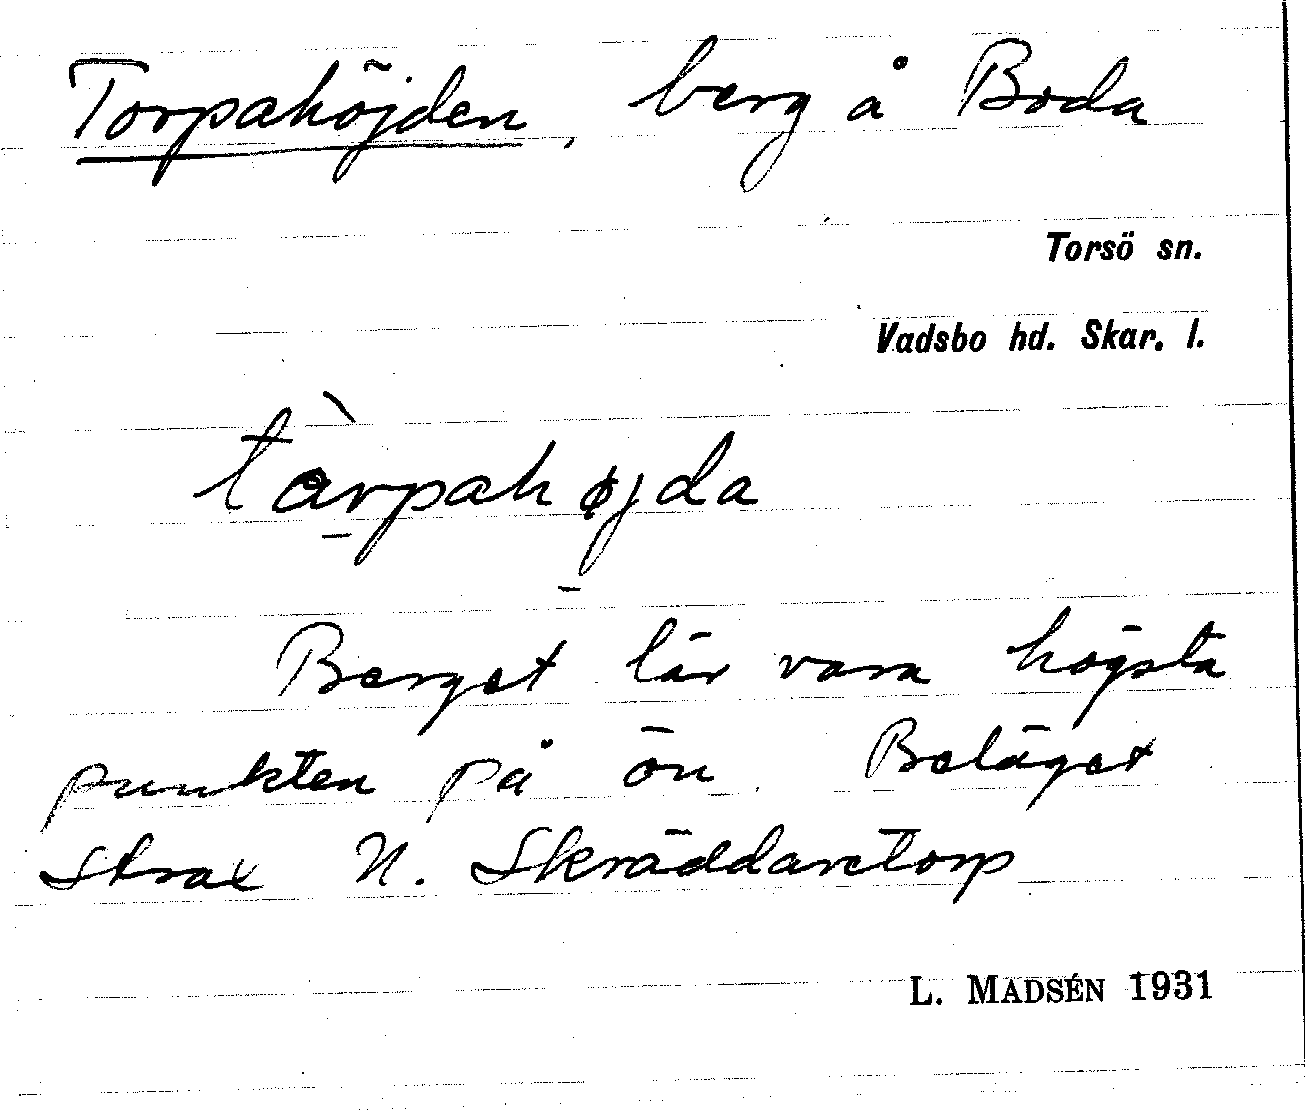 Torpahöjden, berg å Boda
Torsö sn.
Vadsbo hd. Skar. l.
tàrpahøjda
Berget lär vara högsta
punkten på ön. Beläget
strax N. Skräddaretorp
L. MADSÉN 1931